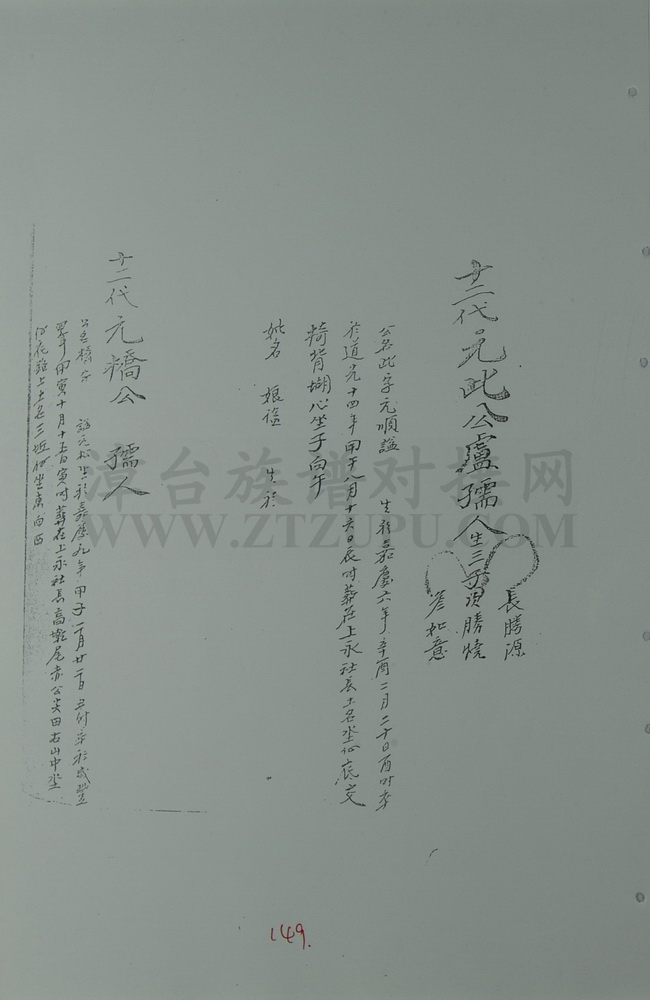 廿二代元此公盧孺人生三子
長勝源
次勝燒
老妣意
公名此字元順諡 生於嘉慶六年辛酉二月二十日酉时卒
於道光十四年甲午八月十六日辰时葬在上永社長土名坐
椅背坐子向午
妣名 娘諡 生於
廿二代元橋公 孺人
公名橋字 諡 生於嘉慶九年甲子 月廿 日 时卒於咸豐
四年甲寅十月十五日寅时葬在上永社長高 尾赤公尖田右山中坐
土名三坵 坐東向西
漳台族谱对接网
WWW.ZTZUPU.COM
149.